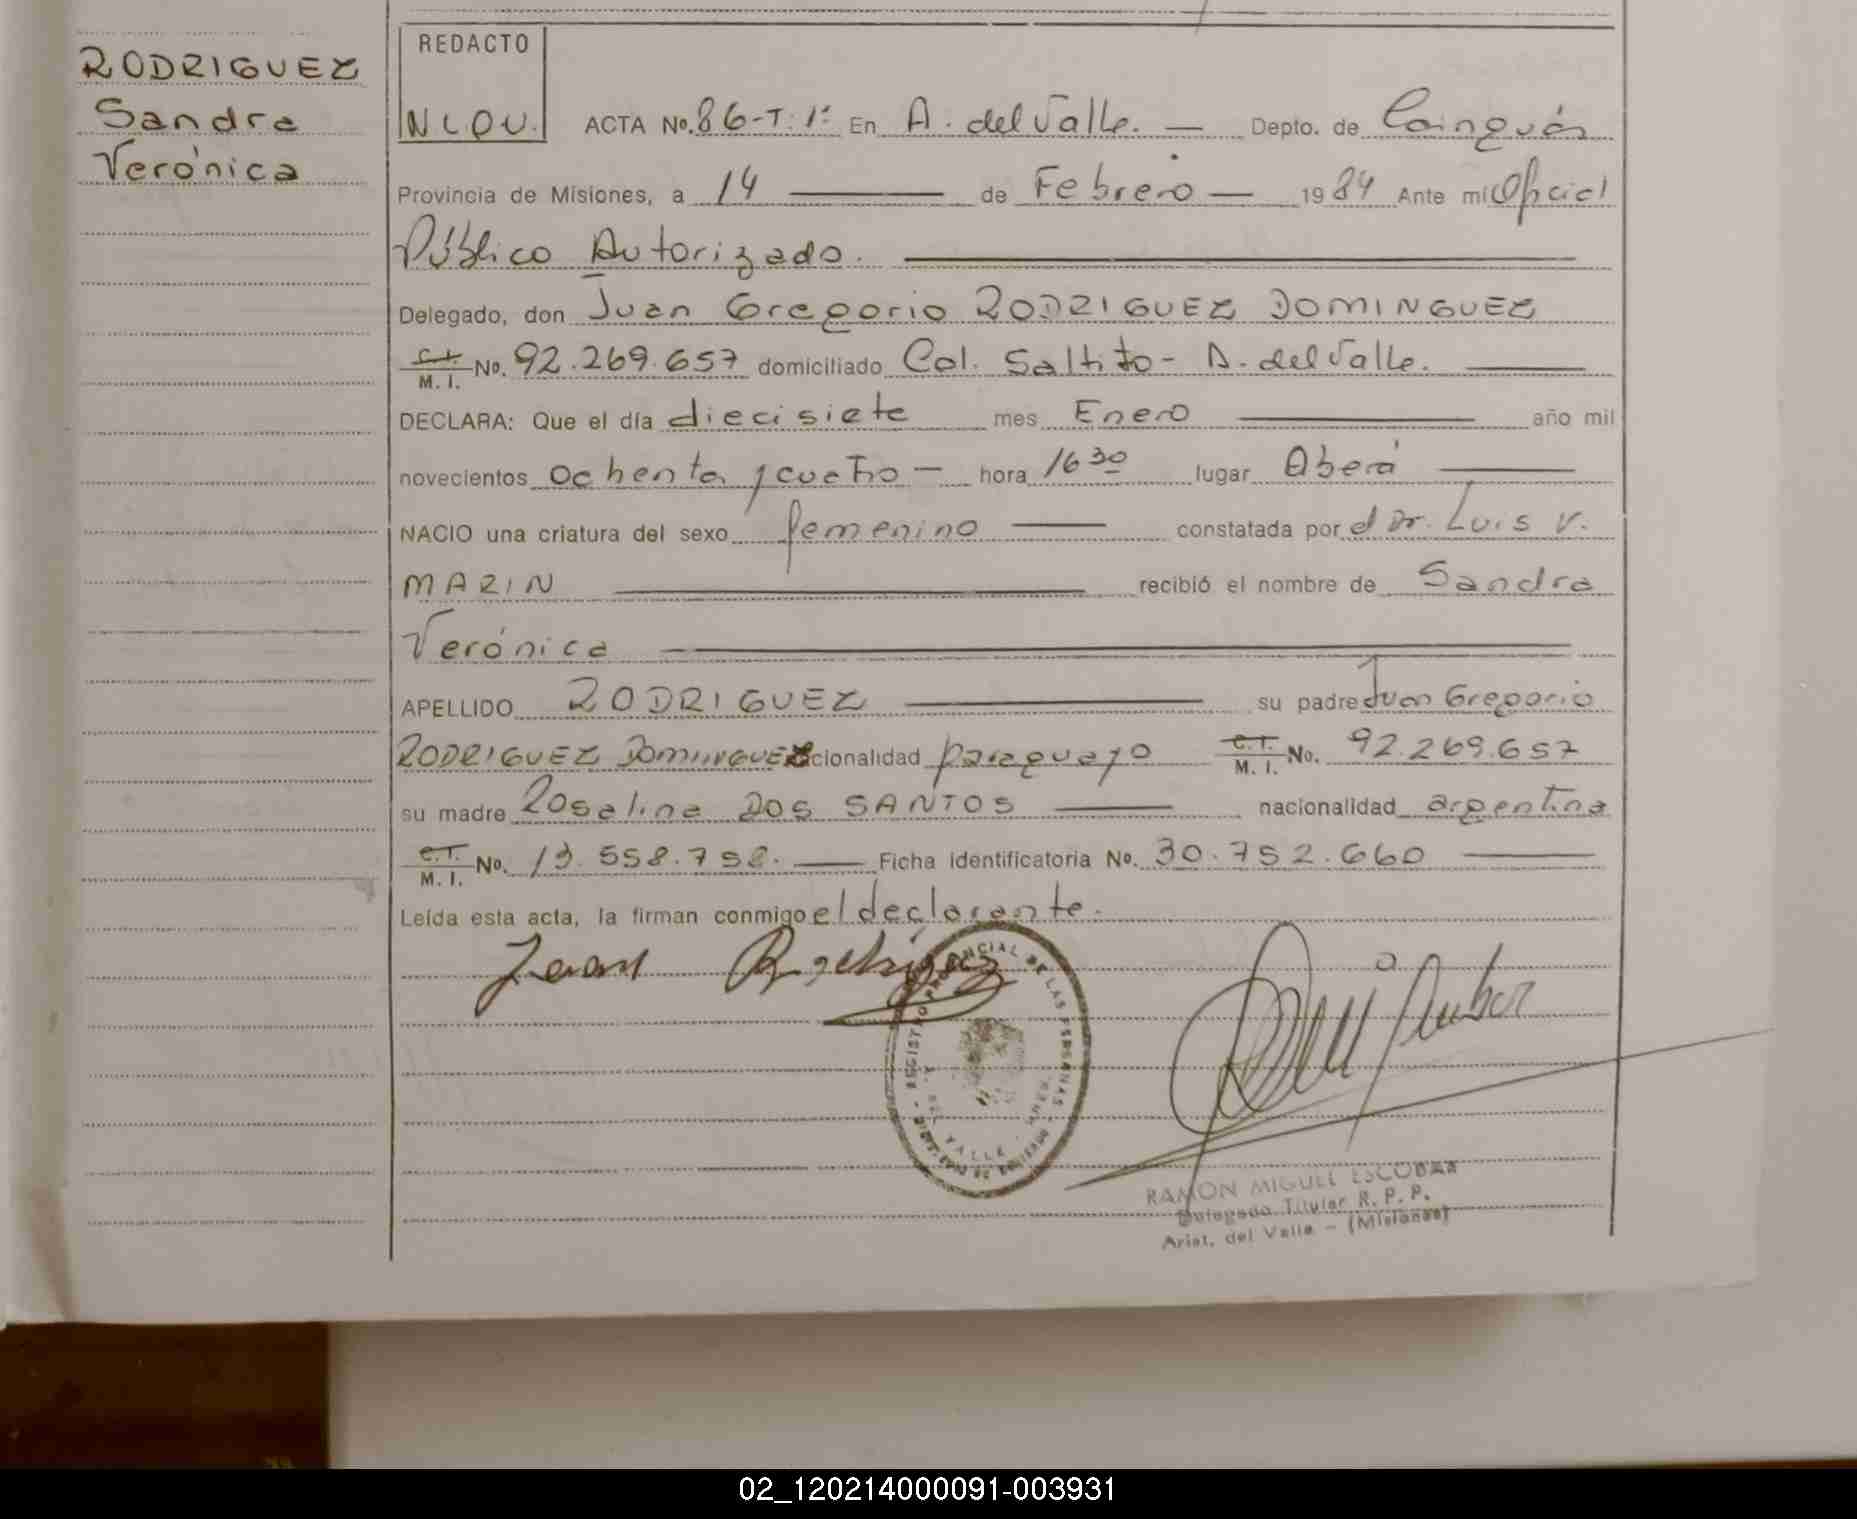 RODRIGUEZ
Sandra
Verónica
REDACTO
N L D V.
ACTA No. 86-T: 1º En A. del Valle. — Depto. de Cainguás
Provincia de Misiones, a 14 — de Febrero — 1984 Ante mí Oficial
Público Autorizado.
Delegado, don Juan Gregorio RODRIGUEZ DOMINGUEZ
C.I. M. I. No. 92.269.657 domiciliado Col. Saltito - A. del Valle.
DECLARA: Que el día diecisiete mes Enero — año mil
novecientos ochenta y cuatro — hora 16 30 lugar Oberá
NACIO una criatura del sexo femenino — constatada por el Dr. Luis V.
MARIN — recibió el nombre de Sandra
Verónica
APELLIDO RODRIGUEZ — su padre Juan Gregorio
RODRIGUEZ DOMINGUEZ cionalidad paraguayo C.I. M. I. No. 92.269.657
su madre Roselina DOS SANTOS — nacionalidad argentina
C.I. M. I. No. 13.558.758. — Ficha identificatoria No. 30.752.660
Leída esta acta, la firman conmigo el declarante.
Juan Rodriguez
REGISTRO PROVINCIAL DE LAS PERSONAS
A. DEL VALLE
RAMON MIGUEL ESCOBAR
Delegado Titular R. P. P.
Arist. del Valle - (Misiones)
02_120214000091-003931